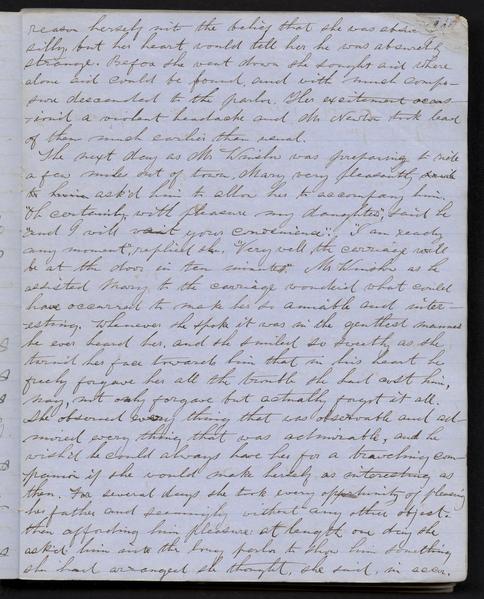 reason herself into the belief that she was
silly, but her heart would tell her he was absurdly
strange. Before she went down she sought aid where
alone aid could be found, and with much compo-
sure descended to the parlor. Her excitement occas-
ion'd a violent headache and Mr Newton took leave
of them much earlier than usual.
The next day as Mr Winslow was preparing to ride
a few miles out of town, Mary very pleasantly
to him ask'd him to allow her to accompany him.
Oh certainly with pleasure my daughter", said he
"and I will wait your convenience"; "I am ready
any moment", replied she. "Very well the carriage will
be at the door in ten minutes". Mr Winslow as he
assisted Mary to the carriage wonder'd what could
have occurred to make her so amiable and inter-
esting. Whenever she spoke it was in the gentlest manner
he ever heard her, and she smiled so sweetly as she
turn'd her face towards him that in his heart he
freely forgave her all the trouble she had cost him,
nay, not only forgave but actually forgot it all.
She observed every thing that was observable and ad
mired every thing that was admirable, and he
wish'd he could always have her for a travelling com
panion if she would make herself as interesting as
then. For several days she took every opportunity of pleasing
her father and seemingly without any other object
than affording him pleasure at length one day she
asked him into the long parlor to show him something
she had arranged she thought, she said, in accor.